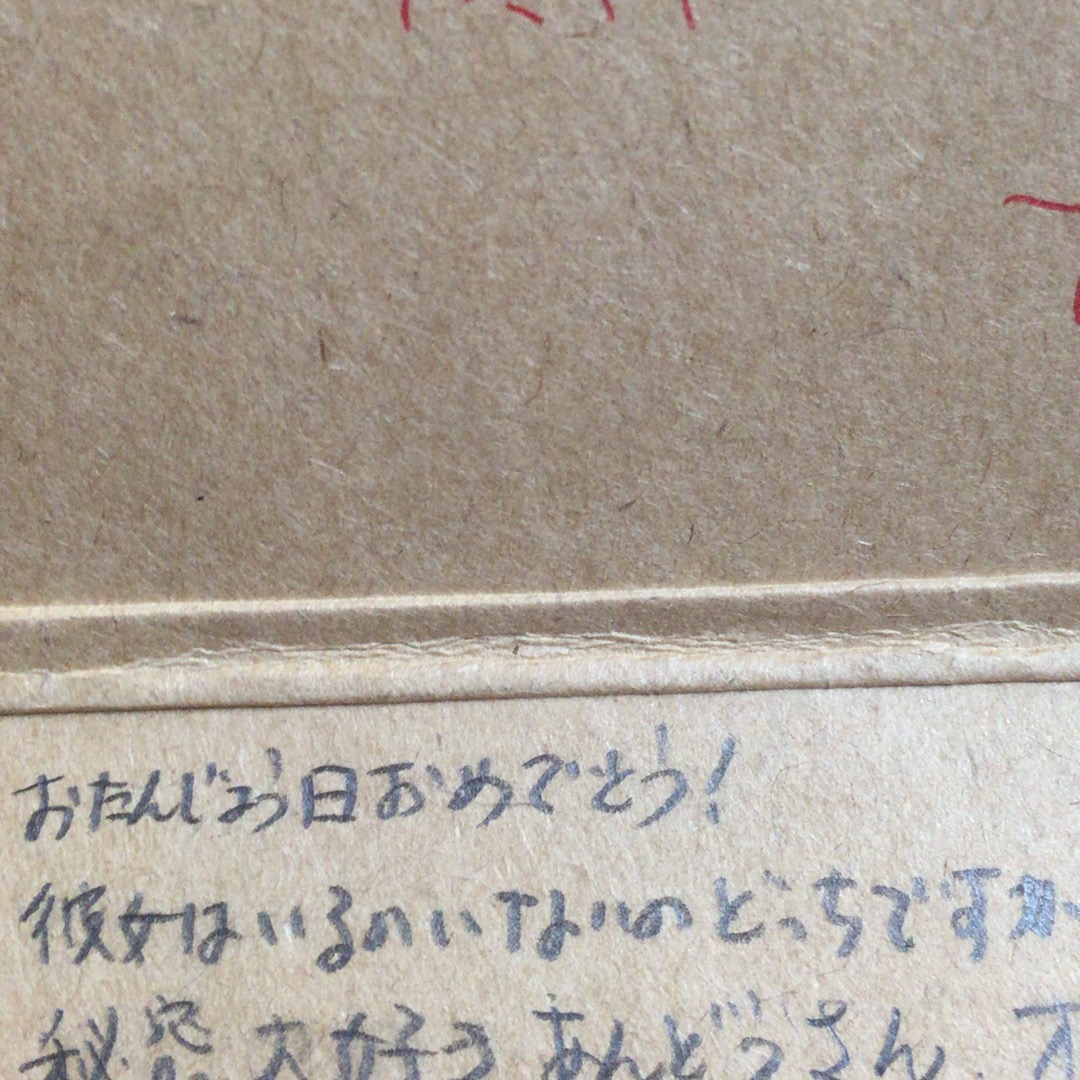 おたんじょう日おめでとう!
彼女はいるのいないのどっちですか
大好き あんどうさん